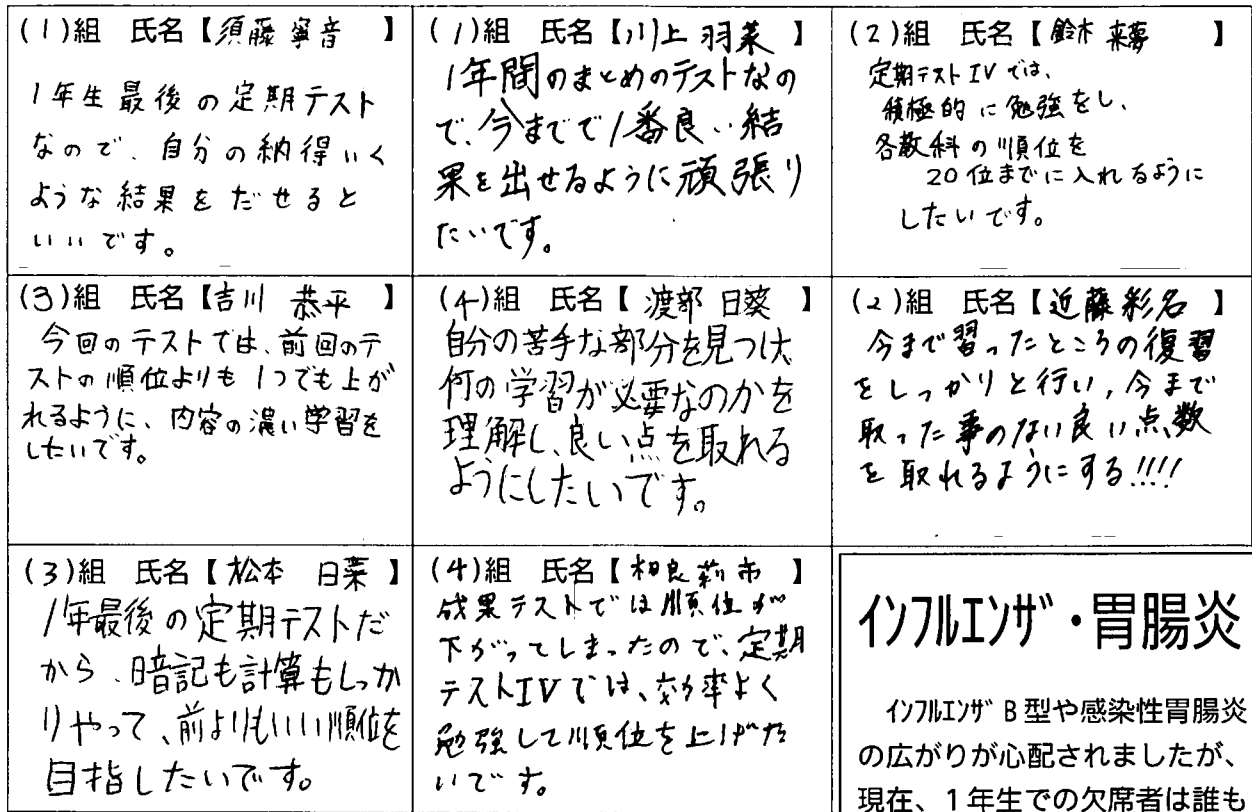 (1)組 氏名【須藤 寧音 】
1年生最後の定期テスト
なので、自分の納得いく
ような結果をだせると
いいです。
(1)組 氏名【川上 羽菜 】
1年間のまとめのテストなの
で、今までで1番良い結
果を出せるように頑張り
たいです。
(2)組 氏名【鈴木 来夢 】
定期テストIVでは、
積極的に勉強をし、
各教科の順位を
20位までに入れるように
したいです。
(3)組 氏名【吉川 恭平 】
今回のテストでは、前回のテ
ストの順位よりも1つでも上が
れるように、内容の濃い学習を
したいです。
(4)組 氏名【渡部 日葵 】
自分の苦手な部分を見つけ、
何の学習が必要なのかを
理解し、良い点を取れる
ようにしたいです。
(2)組 氏名【近藤彩名 】
今まで習ったところの復習
をしっかりと行い,今まで
取った事のない良い点数
を取れるようにする!!!!
(3)組 氏名【松本 日菜 】
1年最後の定期テストだ
から、暗記も計算もしっか
りやって、前よりもいい順位を
目指したいです。
(4)組 氏名【相良莉市 】
成果テストでは順位が
下がってしまったので、定期
テストIVでは、効率よく
勉強して順位を上げた
いです。
インフルエンザ・胃腸炎
インフルエンザB型や感染性胃腸炎
の広がりが心配されましたが、
現在、1年生での欠席者は誰も